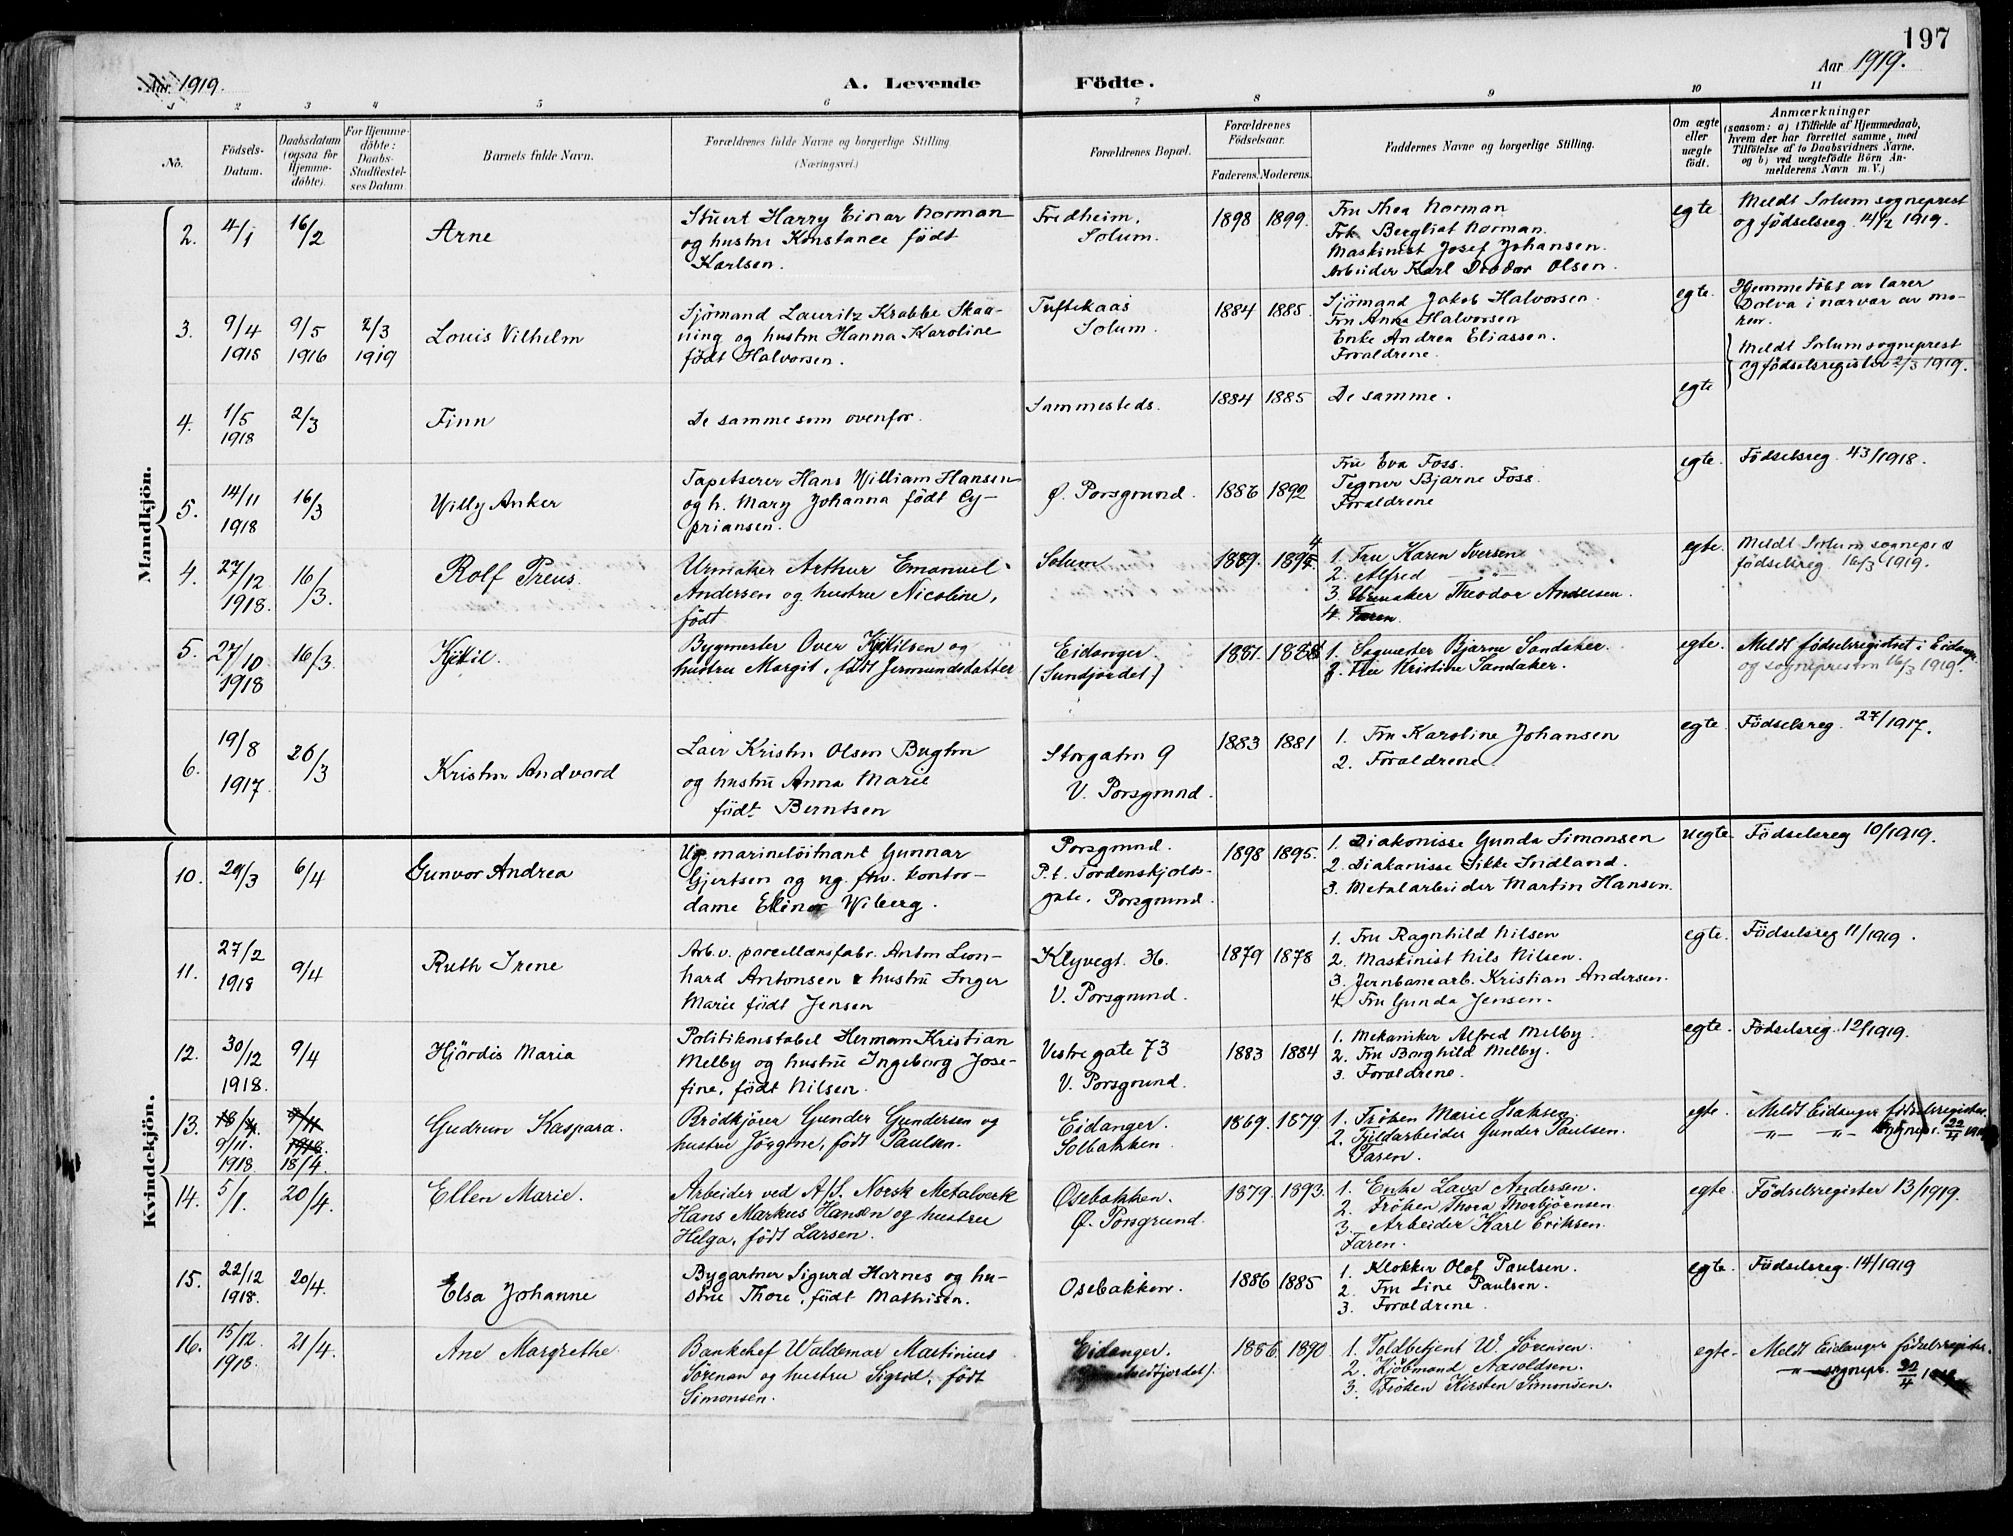 197
Aar 1919.
A. Levende Födte.
Aar 1919.
1 2 3 4 5 6 7 8 9 10 11
No.
Födsels-Datum.
Daabsdatum (ogsaa for Hjemmedöbte)
For Hjemmedöbte: Daabs-Stadfæstelses Datum
Barnets fulde Navn.
Forældrenes fulde Navne og borgerlige Stilling
(Næringsvei.)
Forældrenes Bopæl.
Forældrenes Födselsaar.
Faderens. Moderens.
Faddernes Navne og borgerlige Stilling.
Om ægte eller uægte födt.
Anmærkninger
(saasom: a) i Tilfælde af Hjemmedaab, hvem der har forrettet samme, med Tilföielse af to Daabsvidners Navne, og b) ved uægtefödte Börn Anmelderens Navn m. V.)
Mandkjön.
2. 4/1 16/2 Arne
Stuert Harry Einar Norman
og hustru Konstance födt
Karlsen.
Fredheim,
Solum.
1898 1899.
Fru Thea Norman
Frk Bergliot Norman.
Maskinist Josef Johansen.
Arbeider Karl Olsen.
egte
Meldt Solum sogneprest
og födselsreg. 14/2 1919.
3. 9/4 1918 9/5 1916 2/3 1919
Louis Vilhelm
Sjömand Lauritz Krabbe Skaa-
ning og hustru Hanna Karoline
födt Halvorsen.
Tuftekaas
Solum.
1884 1885.
Sjömand Jakob Halvorsen.
Fru Anna Halvorsen
Enke Andrea Eliassen.
Foraldrene.
egte.
Hjemmedöbt av lærer
Dolva i nærvær av mo-
ren.
Meldt Solum sogneprest
og födselsregister 2/3 1919.
4. 1/5 1918 2/3 Finn
De samme som ovenfor.
Sammesteds.
1884 1885
De samme.
egte
5. 14/11 1918 16/3 Willy Anker
Tapetserer Hans William Hansen
og h. Mary Johanna födt Cy-
priansen.
Ö. Porsgrund.
1886 1892
Fru Eva Foss.
Tegner Bjarne Foss.
Foraldrene
egte.
Födselsreg. 43/1918.
4. 27/12 1918. 16/3. Rolf Preus.
Urmaker Arthur Emanuel
Andersen og hustru Nicoline,
födt
Solum
1889. 1894.
1. Fru Karen Iversen
2. Alfred —
3. Urmaker Theodor Andersen.
4. Faren.
egte.
Meldt Solum
födselsreg. 16/3 1919.
5. 27/10 1918 16/3. Kjetil
Bygmester Over Kjetilsen og
hustru Margit, födt Jermundsdatter
Eidanger.
(Sundjordet.)
1881. 1888
1. Sagmester Bjarne Sandaker.
2. Fru Kristine Sandaker.
egte.
Meldt födselsregistret i Eidanger
og sognepresten 16/3 1919.
6. 19/8 1917. 26/3 Kristen Andvord
Laer Kristen Olsen Bugten
og hustru Anna Marie
födt Berntsen
Storgaten 9
V. Porsgrund.
1883 1881
1. Fru Karoline Johansen
2. Foraldrene.
egte
Födselsreg. 27/1917.
Kvindekjön.
10. 29/3 6/4 Gunvor Andrea
Ug. marinelöitnant Gunnar
Gjertsen og ug. fhv. kontor-
dame Elinor Wiberg.
Porsgrund.
P.t. Tordenskjolds-
gate. Porsgrund.
1898 1895.
1. Diakonisse Gunda Simonsen
2. Diakonisse Sikke Indland.
3. Metalarbeider Martin Hansen.
uegte
Födselsreg 10/1919.
11. 27/2 1918 9/4 Ruth Irene
Arb. v. porcellænsfabr. Anton Leon-
hard Antonsen & hustru Inger
Marie födt Jensen
Klyvegt. 36.
V. Porsgrund.
1879 1878
1. Fru Ragnhild Nilsen
2. Maskinist Nils Nilsen.
3. Jernbanearb. Kristian Andersen.
4. Fru Gunda Jensen.
egte.
Födselsreg 11/1919.
12. 30/12 1918. 9/4 Hjördis Maria
Politikonstabel Herman Kristian
Melby og hustru Ingeborg Jose-
fine, födt Nilsen.
Vestre gate 73
V. Porsgrund.
1883 1884
1. Mekaniker Alfred Melby.
2. Fru Borghild Melby.
3. Foraldrene.
egte.
Födselsreg. 12/1919.
13. 18/4 9/11. 1918 9/11 1918. 18/4. Gudrun Kaspara.
Brödkjörer Gunder Gundersen og
hustru Jörgine, födt Paulsen.
Eidanger.
Solbakken.
1869. 1879.
1. Fröken Marie Isaksen.
2. Fjeldarbeider Gunder Paulsen.
Faren.
egte.
Meldt Eidanger födselsregister.
" " sognepr. 22/4 1919
14. 5/1. 20/4. Ellen Marie.
Arbeider ved A/S. Norsk Metalverk
Hans Markus Hansen og hustru
Helga, födt Larsen.
Osebakken.
Ö. Porsgrund.
1879. 1893.
1. Enke Lava Andersen.
2. Fröken Thora Thorbjörnsen.
3. Arbeider Karl Eriksen.
Faren.
egte.
Födselsregister 13/1919.
15. 22/12 1918. 20/4. Elsa Johanne
Bygartner Sigurd Harnes og hu-
stru Thore, födt Mathisen.
Osebakken.
1886 1885
1. Klokker Olaf Paulsen.
2. Fru Line Paulsen.
3. Foraldrene.
egte.
Födselsreg. 14/1919
16. 15/12. 1918. 21/4. Ane Margrethe.
Bankchef Waldemar Martinius
Sörensen og hustru Sigrid, födt
Simonsen.
Eidanger.
1886. 1890
1. Toldbetjent W. Sörensen.
2. Kjöbmand Aasoldsen.
3. Fröken Kirsten Simonsen.
egte.
Meldt Eidanger födselsregister.
" sognepr. 22/4